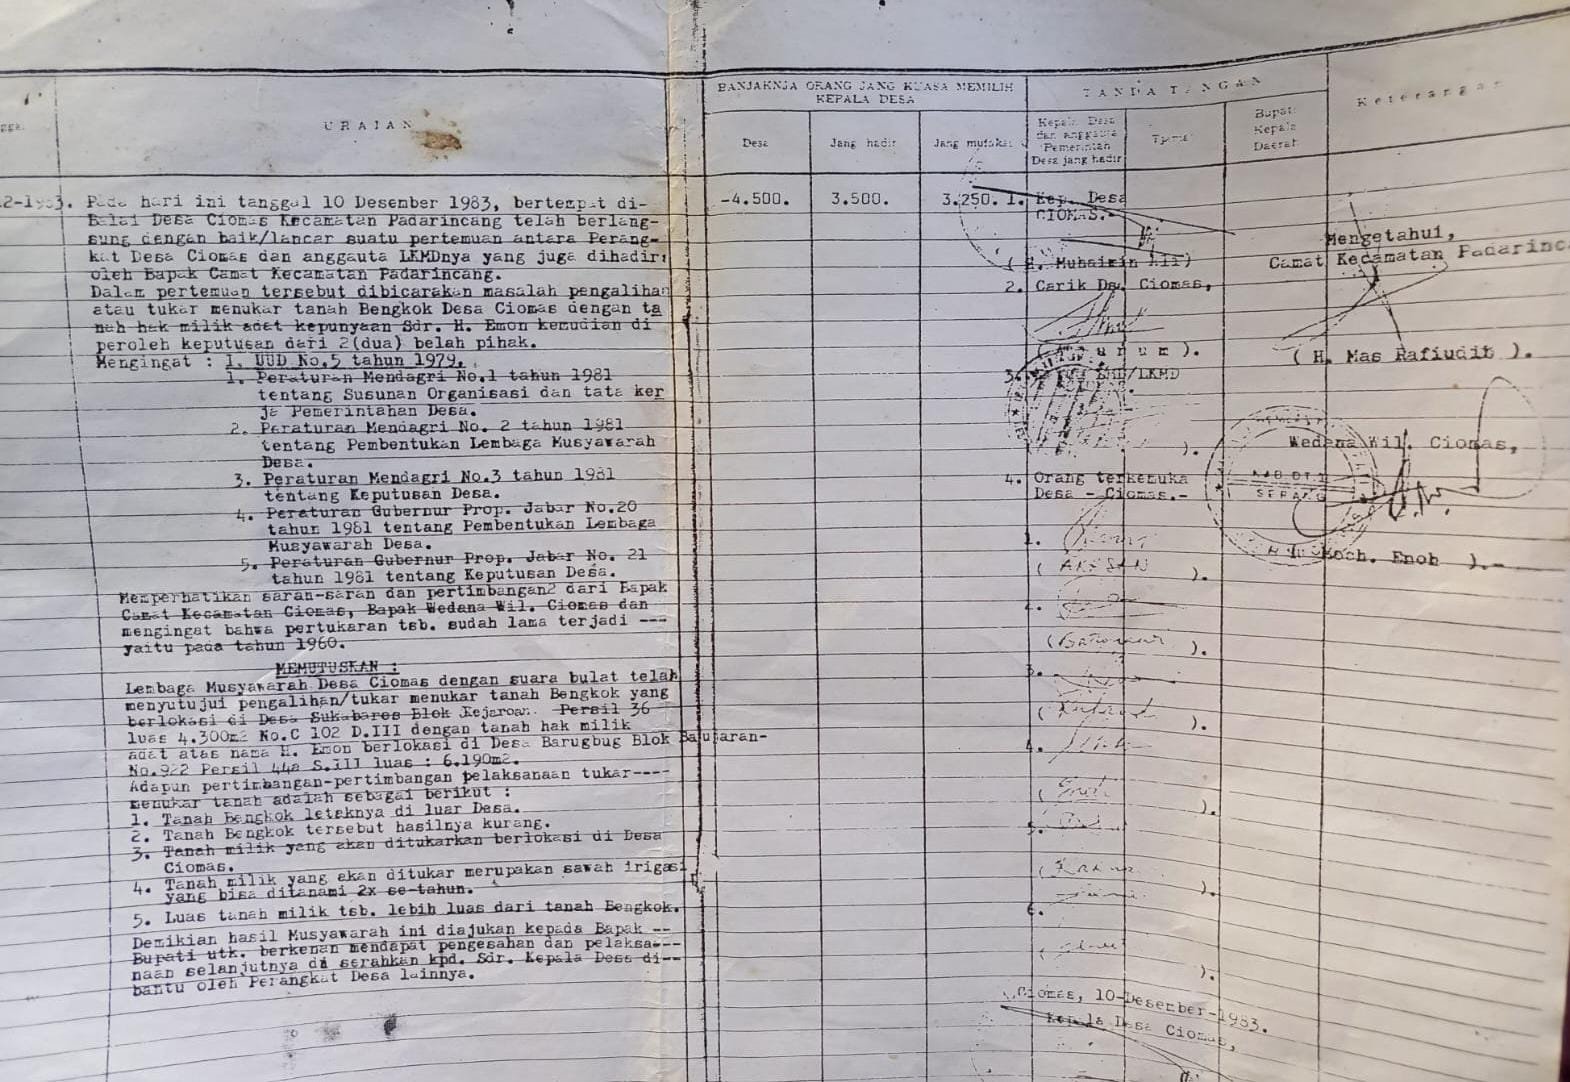 URAIAN
BANJAKNJA ORANG JANG KUASA MEMILIH
KEPALA DESA
TANDA TANGAN
Keterangan
Desa
Jang hadir
Jang mufakat
Kepala Desa
dan anggauta
Pemerintah
Desa jang hadir
Bupati
Kepala
Daerah
Pada hari ini tanggal 10 Desember 1983, bertempat di-
Balai Desa Ciomas Kecamatan Padarincang telah berlang-
sung dengan baik/lancar suatu pertemuan antara Perang-
kat Desa Ciomas dan anggauta LKMDnya yang juga dihadiri
oleh Bapak Camat Kecamatan Padarincang.
Dalam pertemuan tersebut dibicarakan masalah pengalihan
atau tukar menukar tanah Bengkok Desa Ciomas dengan ta
nah hak milik adat kepunyaan Sdr. H. Emon kemudian di
peroleh keputusan dari 2(dua) belah pihak.
Mengingat : I. UUD No.5 tahun 1979.
1. Peraturan Mendagri No.1 tahun 1981
tentang Susunan Organisasi dan tata ker
ja Pemerintahan Desa.
2. Peraturan Mendagri No. 2 tahun 1981
tentang Pembentukan Lembaga Musyawarah
Desa.
3. Peraturan Mendagri No.3 tahun 1981
tentang Keputusan Desa.
4. Peraturan Gubernur Prop. Jabar No.20
tahun 1981 tentang Pembentukan Lembaga
Musyawarah Desa.
5. Peraturan Gubernur Prop. Jabar No. 21
tahun 1981 tentang Keputusan Desa.
Memperhatikan saran-saran dan pertimbangan2 dari Bapak
Camat Kecamatan Ciomas, Bapak Wedana Wil. Ciomas dan
mengingat bahwa pertukaran tsb. sudah lama terjadi ---
yaitu pada tahun 1960.
MEMUTUSKAN :
Lembaga Musyawarah Desa Ciomas dengan suara bulat telah
menyutujui pengalihan/tukar menukar tanah Bengkok yang
berlokasi di Desa Sukabares Blok Kejaroan Persil 36
luas 4.300m2 No.C 102 D.III dengan tanah hak milik
adat atas nama H. Emon berlokasi di Desa Barugbug Blok Balujaran-
No.922 Persil 44a S.III luas : 6.190m2.
Adapun pertimbangan-pertimbangan pelaksanaan tukar----
menukar tanah adalah sebagai berikut :
1. Tanah Bengkok letaknya di luar Desa.
2. Tanah Bengkok tersebut hasilnya kurang.
3. Tanah milik yang akan ditukarkan berlokasi di Desa
Ciomas.
4. Tanah milik yang akan ditukar merupakan sawah irigasi
yang bisa ditanami 2x se-tahun.
5. Luas tanah milik tsb. lebih luas dari tanah Bengkok.
Demikian hasil Musyawarah ini diajukan kepada Bapak --
Bupati utk. berkenan mendapat pengesahan dan pelaksa---
naan selanjutnya di serahkan kpd. Sdr. Kepala Desa di--
bantu oleh Perangkat Desa lainnya.
-4.500.
3.500.
3.250.
1. Kep. Desa
CIOMAS.-
( H. Muhaimin Ali )
2. Carik Ds. Ciomas,
).
3. LMD/LKMD
).
4. Orang terkemuka
Desa - Ciomas.-
1.
( AKSAN ).
2.
( ).
3.
( ).
4.
( ).
5.
( ).
6.
( ).
Mengetahui,
Camat Kecamatan Padarinc
( H. Mas Rafiudit ).
Wedana Wil. Ciomas,
KAB. DT. II
SERANG
Moch. Enoh ).-
Ciomas, 10-Desember-1983.
Kepala Desa Ciomas,